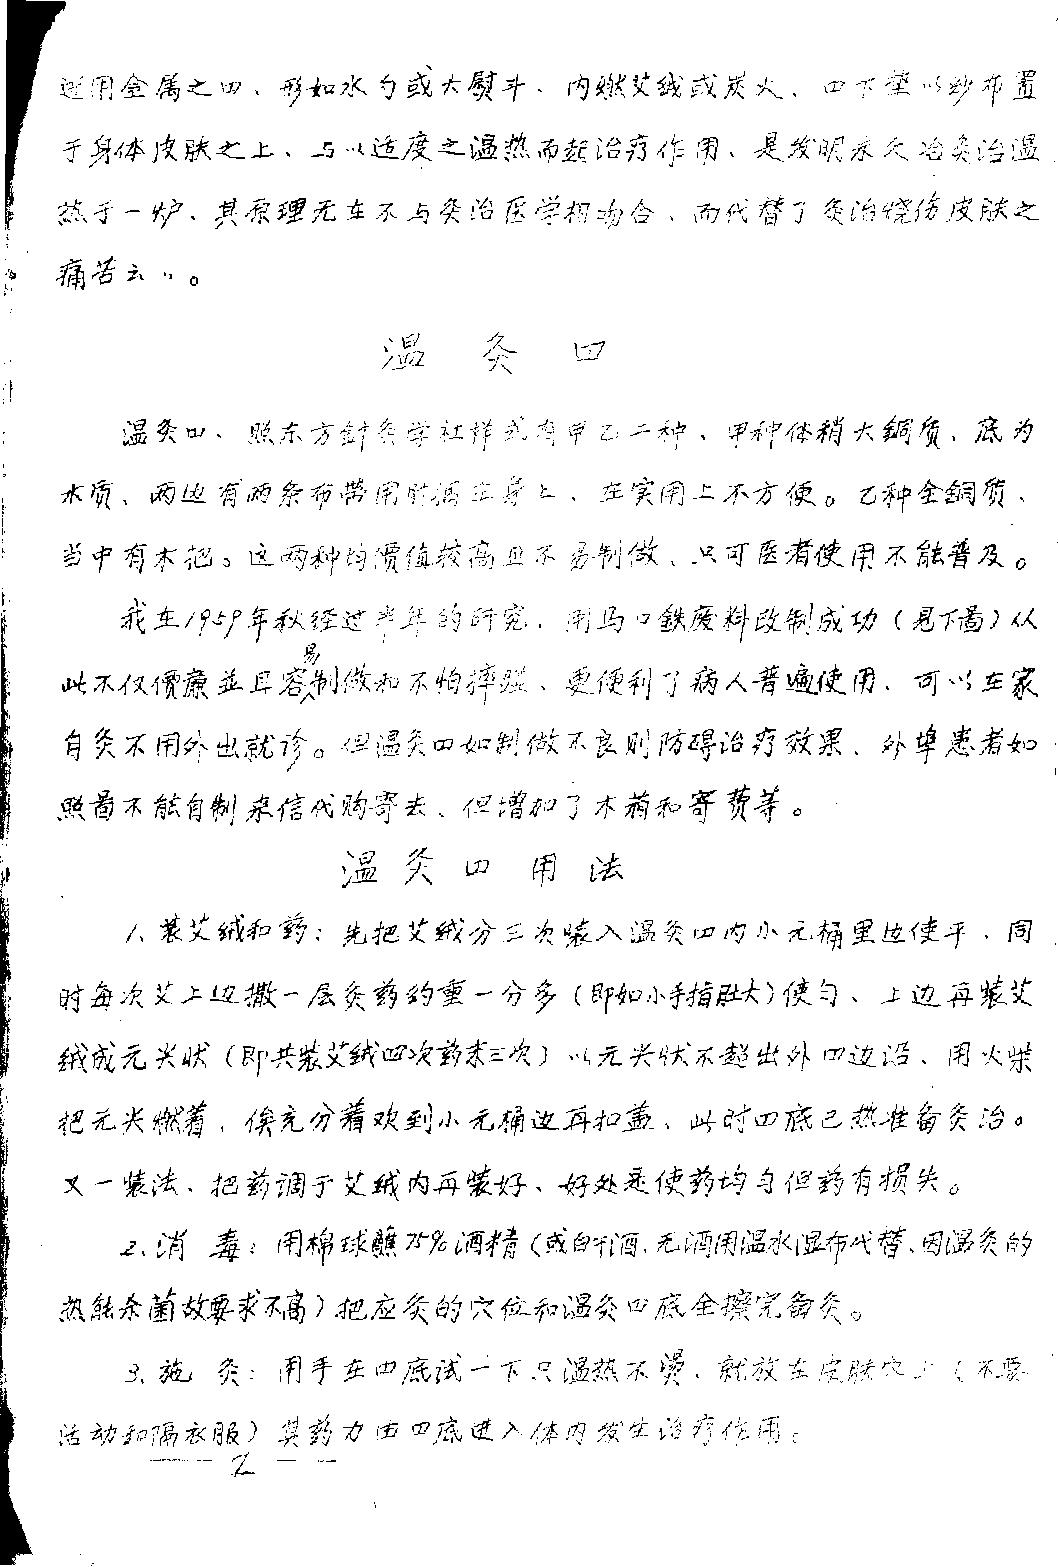 近用金属之四、形如水勺或大熨斗、内燃艾绒或炭火、四下垫以纱布置
于身体皮肤之上、与以适度之温热而起治疗作用、是发明永久冶灸治温
热于一炉、其原理无在不与灸治医学相吻合、而代替了灸治烧伤皮肤之
痛苦云〃。
温灸四
温灸四、照东方針灸学社样式有甲乙二种、甲种体稍大銅质、底为
木质、两边有两条布带用时捆在身上、在实用上不方便。乙种全銅质、
当中有木把。这两种均價值较高且不易制做、只可医者使用不能普及。
我在1959年秋经过半年的研究、用马口鉄废料改制成功（見下啚）从
此不仅價廉並且容易制做和不怕摔碰、更便利了病人普遍使用、可以在家
自灸不用外出就诊。但温灸四如制做不良则防碍治疗效果、外埠患者如
照啚不能自制来信代购寄去、但增加了木箱和寄费等。
温灸四用法
1、装艾绒和药：先把艾绒分三次装入温灸四内小元桶里边使平、同
时每次艾上边撒一层灸药约重一分多（即如小手指肚大）使匀、上边再装艾
绒成元尖状（即共装艾绒四次药末三次）以元尖状不超出外四边沿、用火柴
把元尖燃着、俟充分着欢到小元桶边再扣盖、此时四底已热准备灸治。
又一装法、把药调于艾绒内再装好、好处是使药均匀但药有损失。
2、消毒：用棉球蘸75%酒精（或白干酒、无酒用温水湿布代替、因温灸的
热能杀菌故要求不高）把应灸的穴位和温灸四底全擦完备灸。
3、施灸：用手在四底试一下只温热不烫、就放在皮肤穴上（不要
活动和隔衣服）其药力由四底进入体内发生治疗作用。
2